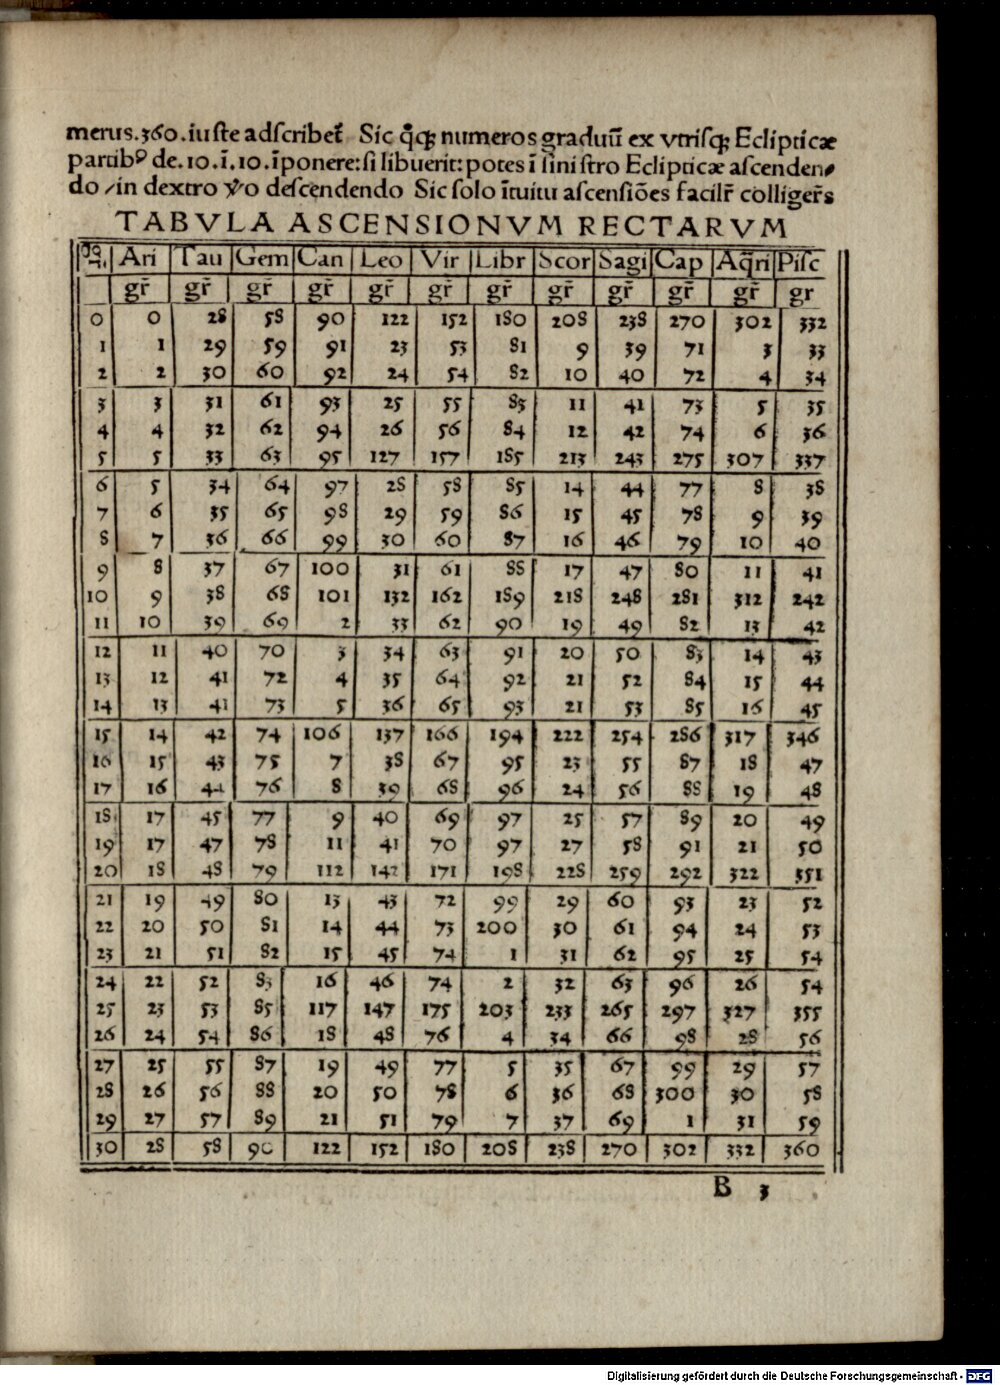 merus.360.iuste adscribet̃ Sic q̊q; numeros graduũ ex vtrisq; Eclipticæ
partibꝰ de.10.ĩ.10.ĩponere:si libuerit:potes ĩ sinistro Eclipticæ ascenden⸗
do /in dextro ꝟo descendendo Sic solo ĩtuitu ascensiões facilr̃ colliger̃s
TABVLA ASCENSIONVM RECTARVM
Ari Tau Gem Can Leo Vir Libr Scor Sagi Cap Aq̃ri Pisc
gr̃ gr̃ gr̃ gr̃ gr̃ gr̃ gr̃ gr̃ gr̃ gr̃ gr̃ gr
0 0 28 58 90 122 152 180 208 238 270 302 332
1 1 29 59 91 23 53 81 9 39 71 3 33
2 2 30 60 92 24 54 82 10 40 72 4 34
3 3 31 61 93 25 55 83 11 41 73 5 35
4 4 32 62 94 26 56 84 12 42 74 6 36
5 5 33 63 95 127 157 185 213 243 275 307 337
6 5 34 64 97 28 58 85 14 44 77 8 38
7 6 35 65 98 29 59 86 15 45 78 9 39
8 7 36 66 99 30 60 87 16 46 79 10 40
9 8 37 67 100 31 61 88 17 47 80 11 41
10 9 38 68 101 132 162 189 218 248 281 312 242
11 10 39 69 2 33 62 90 19 49 82 13 42
12 11 40 70 3 34 63 91 20 50 83 14 43
13 12 41 72 4 35 64 92 21 52 84 15 44
14 13 41 73 5 36 65 93 21 53 85 16 45
15 14 42 74 106 137 166 194 222 254 286 317 346
16 15 43 75 7 38 67 95 23 55 87 18 47
17 16 44 76 8 39 68 96 24 56 88 19 48
18 17 45 77 9 40 69 97 25 57 89 20 49
19 17 47 78 11 41 70 97 27 58 91 21 50
20 18 48 79 112 142 171 198 228 259 292 322 351
21 19 49 80 13 43 72 99 29 60 93 23 52
22 20 50 81 14 44 73 200 30 61 94 24 53
23 21 51 82 15 45 74 1 31 62 95 25 54
24 22 52 83 16 46 74 2 32 63 96 26 54
25 23 53 85 117 147 175 203 233 265 297 327 355
26 24 54 86 18 48 76 4 34 66 98 28 56
27 25 55 87 19 49 77 5 35 67 99 29 57
28 26 56 88 20 50 78 6 36 68 300 30 58
29 27 57 89 21 51 79 7 37 69 1 31 59
30 28 58 90 122 152 180 208 238 270 302 332 360
B 3
Digitalisierung gefördert durch die Deutsche Forschungsgemeinschaft - DFG